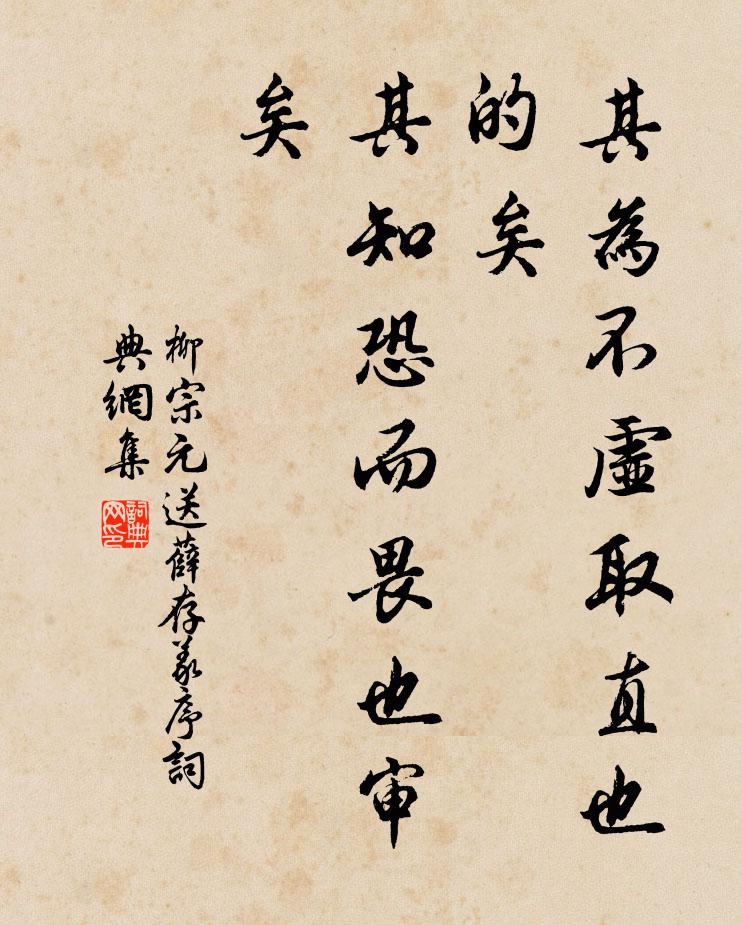 其為不虛取直也
的矣
其知恐而畏也审
矣
柳宗元送薛存義序詞
典網集
詞典
网印